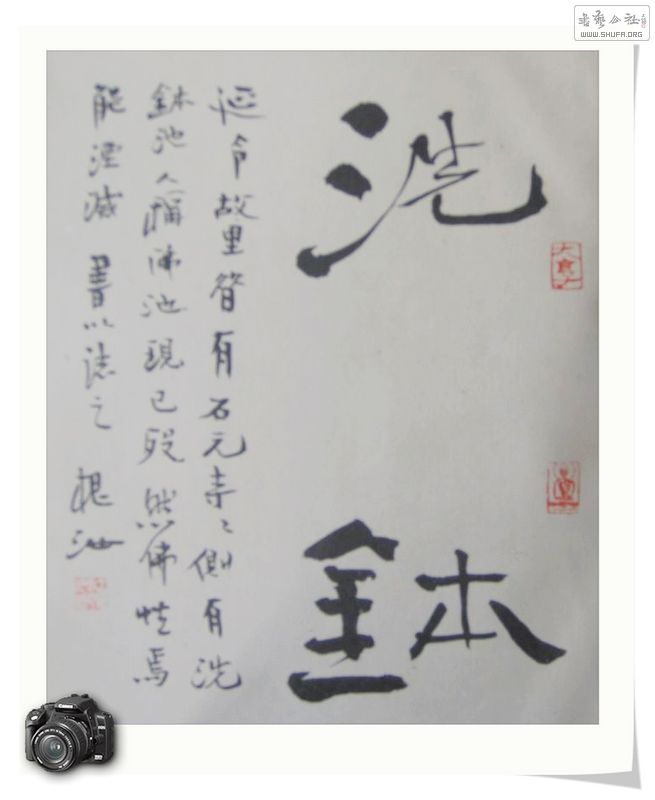 洗鉢
延令故里昔有石元寺〻側有洗
鉢池人稱佛池現已毀然佛性焉
能湮滅書以誌之 根池
大食大
書藝公社
WWW.SHUFA.ORG
Canon